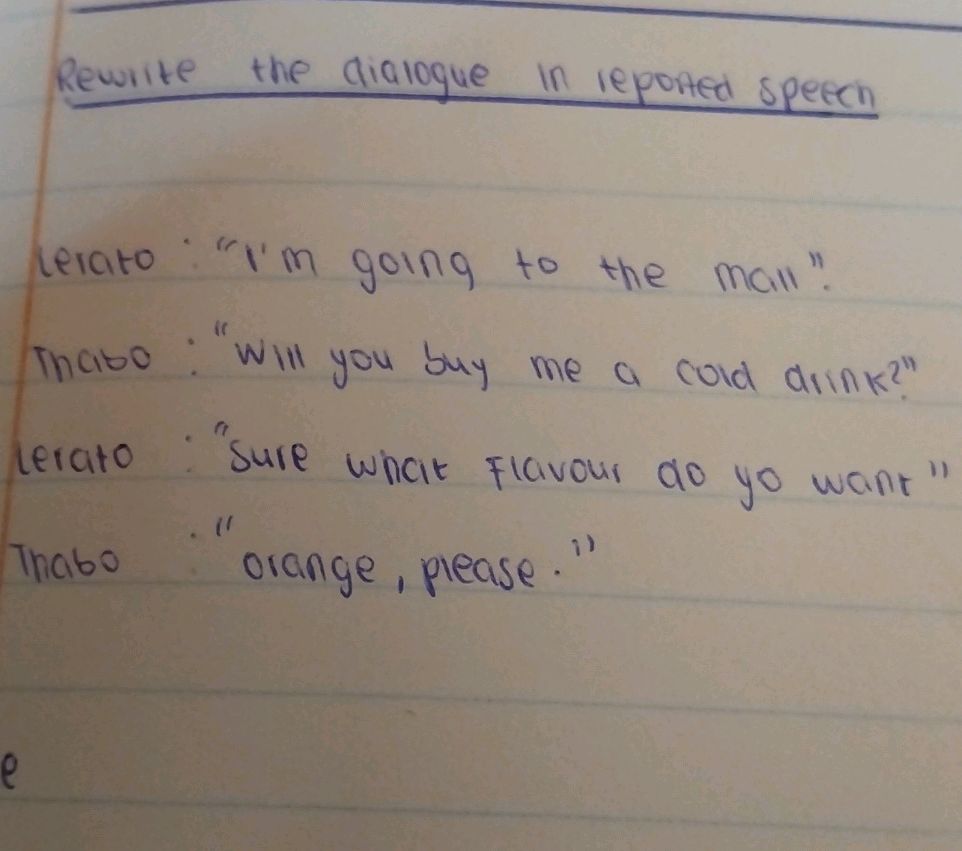 Rewrite the dialogue in reported speech
Lerato : "I'm going to the mall".
Thabo : "Will you buy me a cold drink?"
Lerato : "Sure what Flavour do yo want"
Thabo : "orange, please."
e